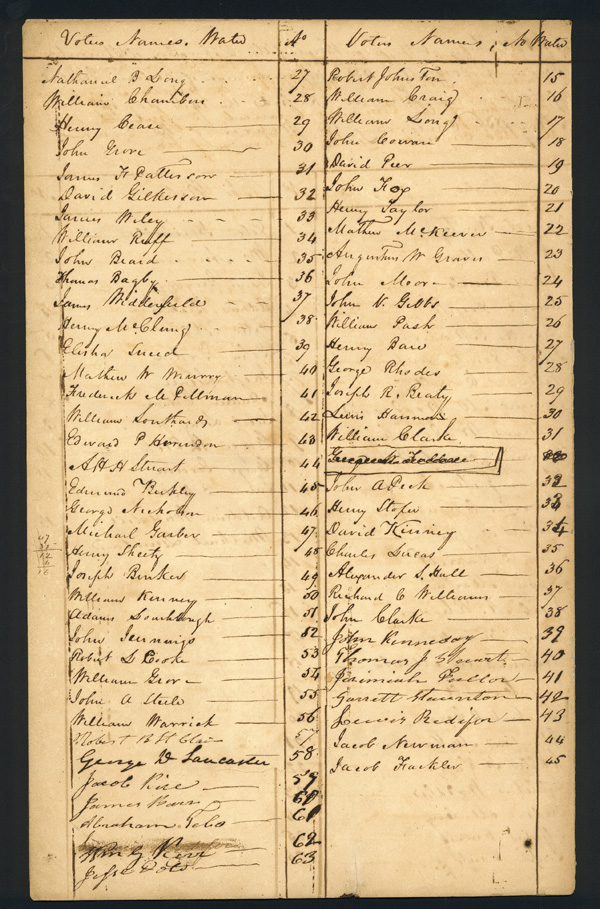 Voters Names. Water No
Nathaniel B Long 27
William Chambers 28
Henry Cease 29
John Grove 30
James F Patterson 31
David Gilkerson 32
James Wiley 33
William Ruff 34
John Beard 35
Thomas Bagby 36
James Widdefield 37
Henry McClung 38
Elisha Sneed 39
Mathew W 40
Frederick M Pellman 41
William Southards 42
Edward P 43
A H H Stuart 44
Edmund Berkley 45
George Nicholson 46
Michael Garber 47
Henry Sheetz 48
Joseph Bunker 49
William Kenney 50
Adam 51
John Jennings 52
Robert S Cooke 53
William Grove 54
John A Steele 55
William Warrick 56
Robert 57
George D Lancaster 58
Jacob Kise 59
James 60
Abraham 61
62
63
Voters Names, No Water
Robert Johnston 15
William Craig 16
William Long 17
John Cowan 18
David Peer 19
John Fox 20
Henry Taylor 21
Mathew McKeever 22
Augustus W Graves 23
John Moore 24
John N. Gibbs 25
William Pash 26
Henry Bare 27
George Rhodes 28
Joseph R. Beaty 29
Lewis Harman 30
William Clarke 31
John A Peck
Henry Stofer
David Kinney
Charles Lucas 35
Alexander S. Hall 36
Richard C Williams 37
John Clarke 38
John Kenneday 39
Thomas J Stuart 40
Jeremiah Fuller 41
Garrett Staunton 42
Lewis Redifer 43
Jacob Newman 44
Jacob Fackler 45